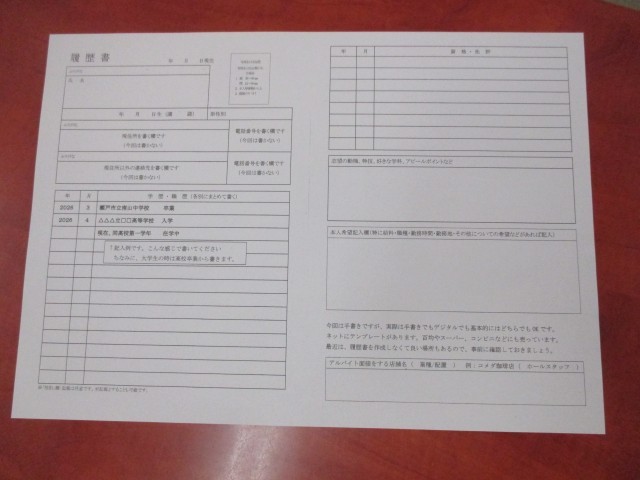 履歴書
年 月 日現在
ふりがな
氏 名
年 月 日生 (満 歳)
ふりがな
現住所を書く欄です
(今回は書かない)
電話番号を書く欄です
(今回は書かない)
ふりがな
(今回は書かない)
電話番号を書く欄です
(今回は書かない)
年 月 学歴・職歴 (各別にまとめて書く)
2026 3 瀬戸市立南山中学校 卒業
2026 4 △△△立□□高等学校 入学
現在、同高校第一学年 在学中
↑記入例です。こんな感じで書いてください
ちなみに、大学生の時は高校卒業から書きます。
年 月 資格・免許
志望の動機、特技、好きな学科、アピールポイントなど
本人希望記入欄(特に給料・職種・勤務時間・勤務地・その他についての希望などがあれば記入)
今回は手書きですが、実際は手書きでもデジタルでも基本的にはどちらでもOKです。
ネットにテンプレートがあります。百均やスーパー、コンビニなどにも売っています。
最近は、履歴書を作成しなくて良い場所もあるので、事前に確認しておきましょう。
アルバイト面接をする店舗名 ( 業種/配属 ) 例：コメダ珈琲店 ( ホールスタッフ )